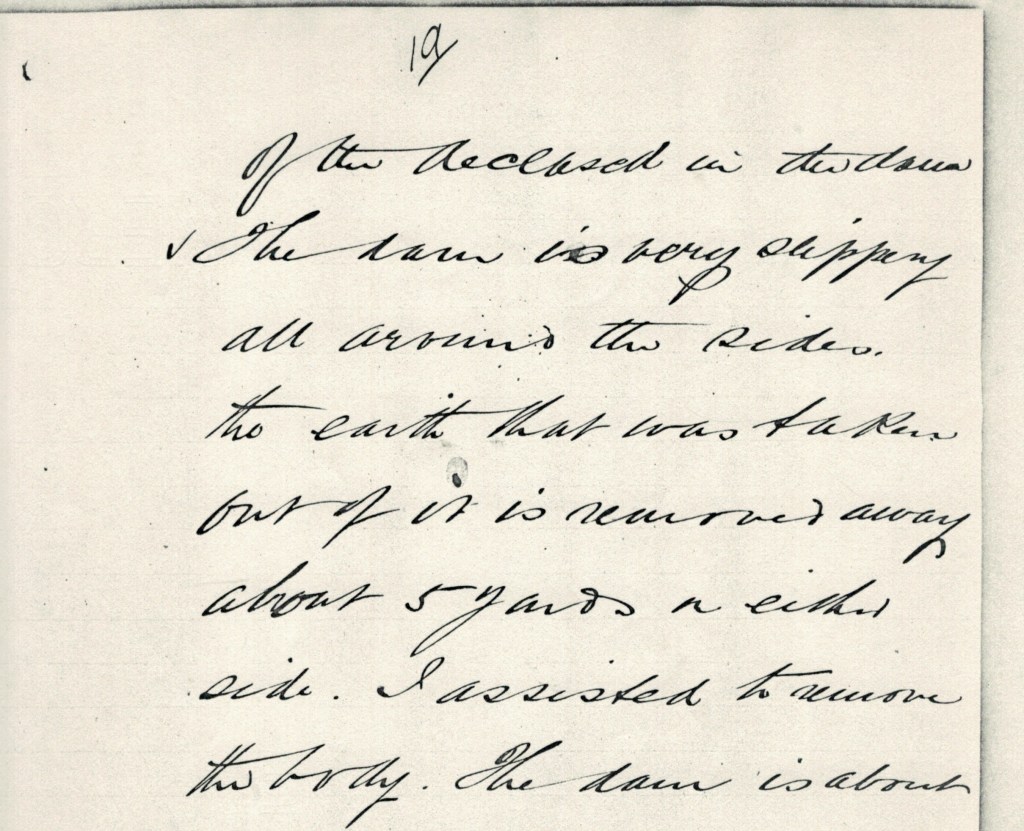 19
of the deceased in the dam
✓ The dam is very slippery
all around the sides.
the earth that was taken
out of it is removed away
about 5 yards on either
side. I assisted to remove
the body. The dam is about